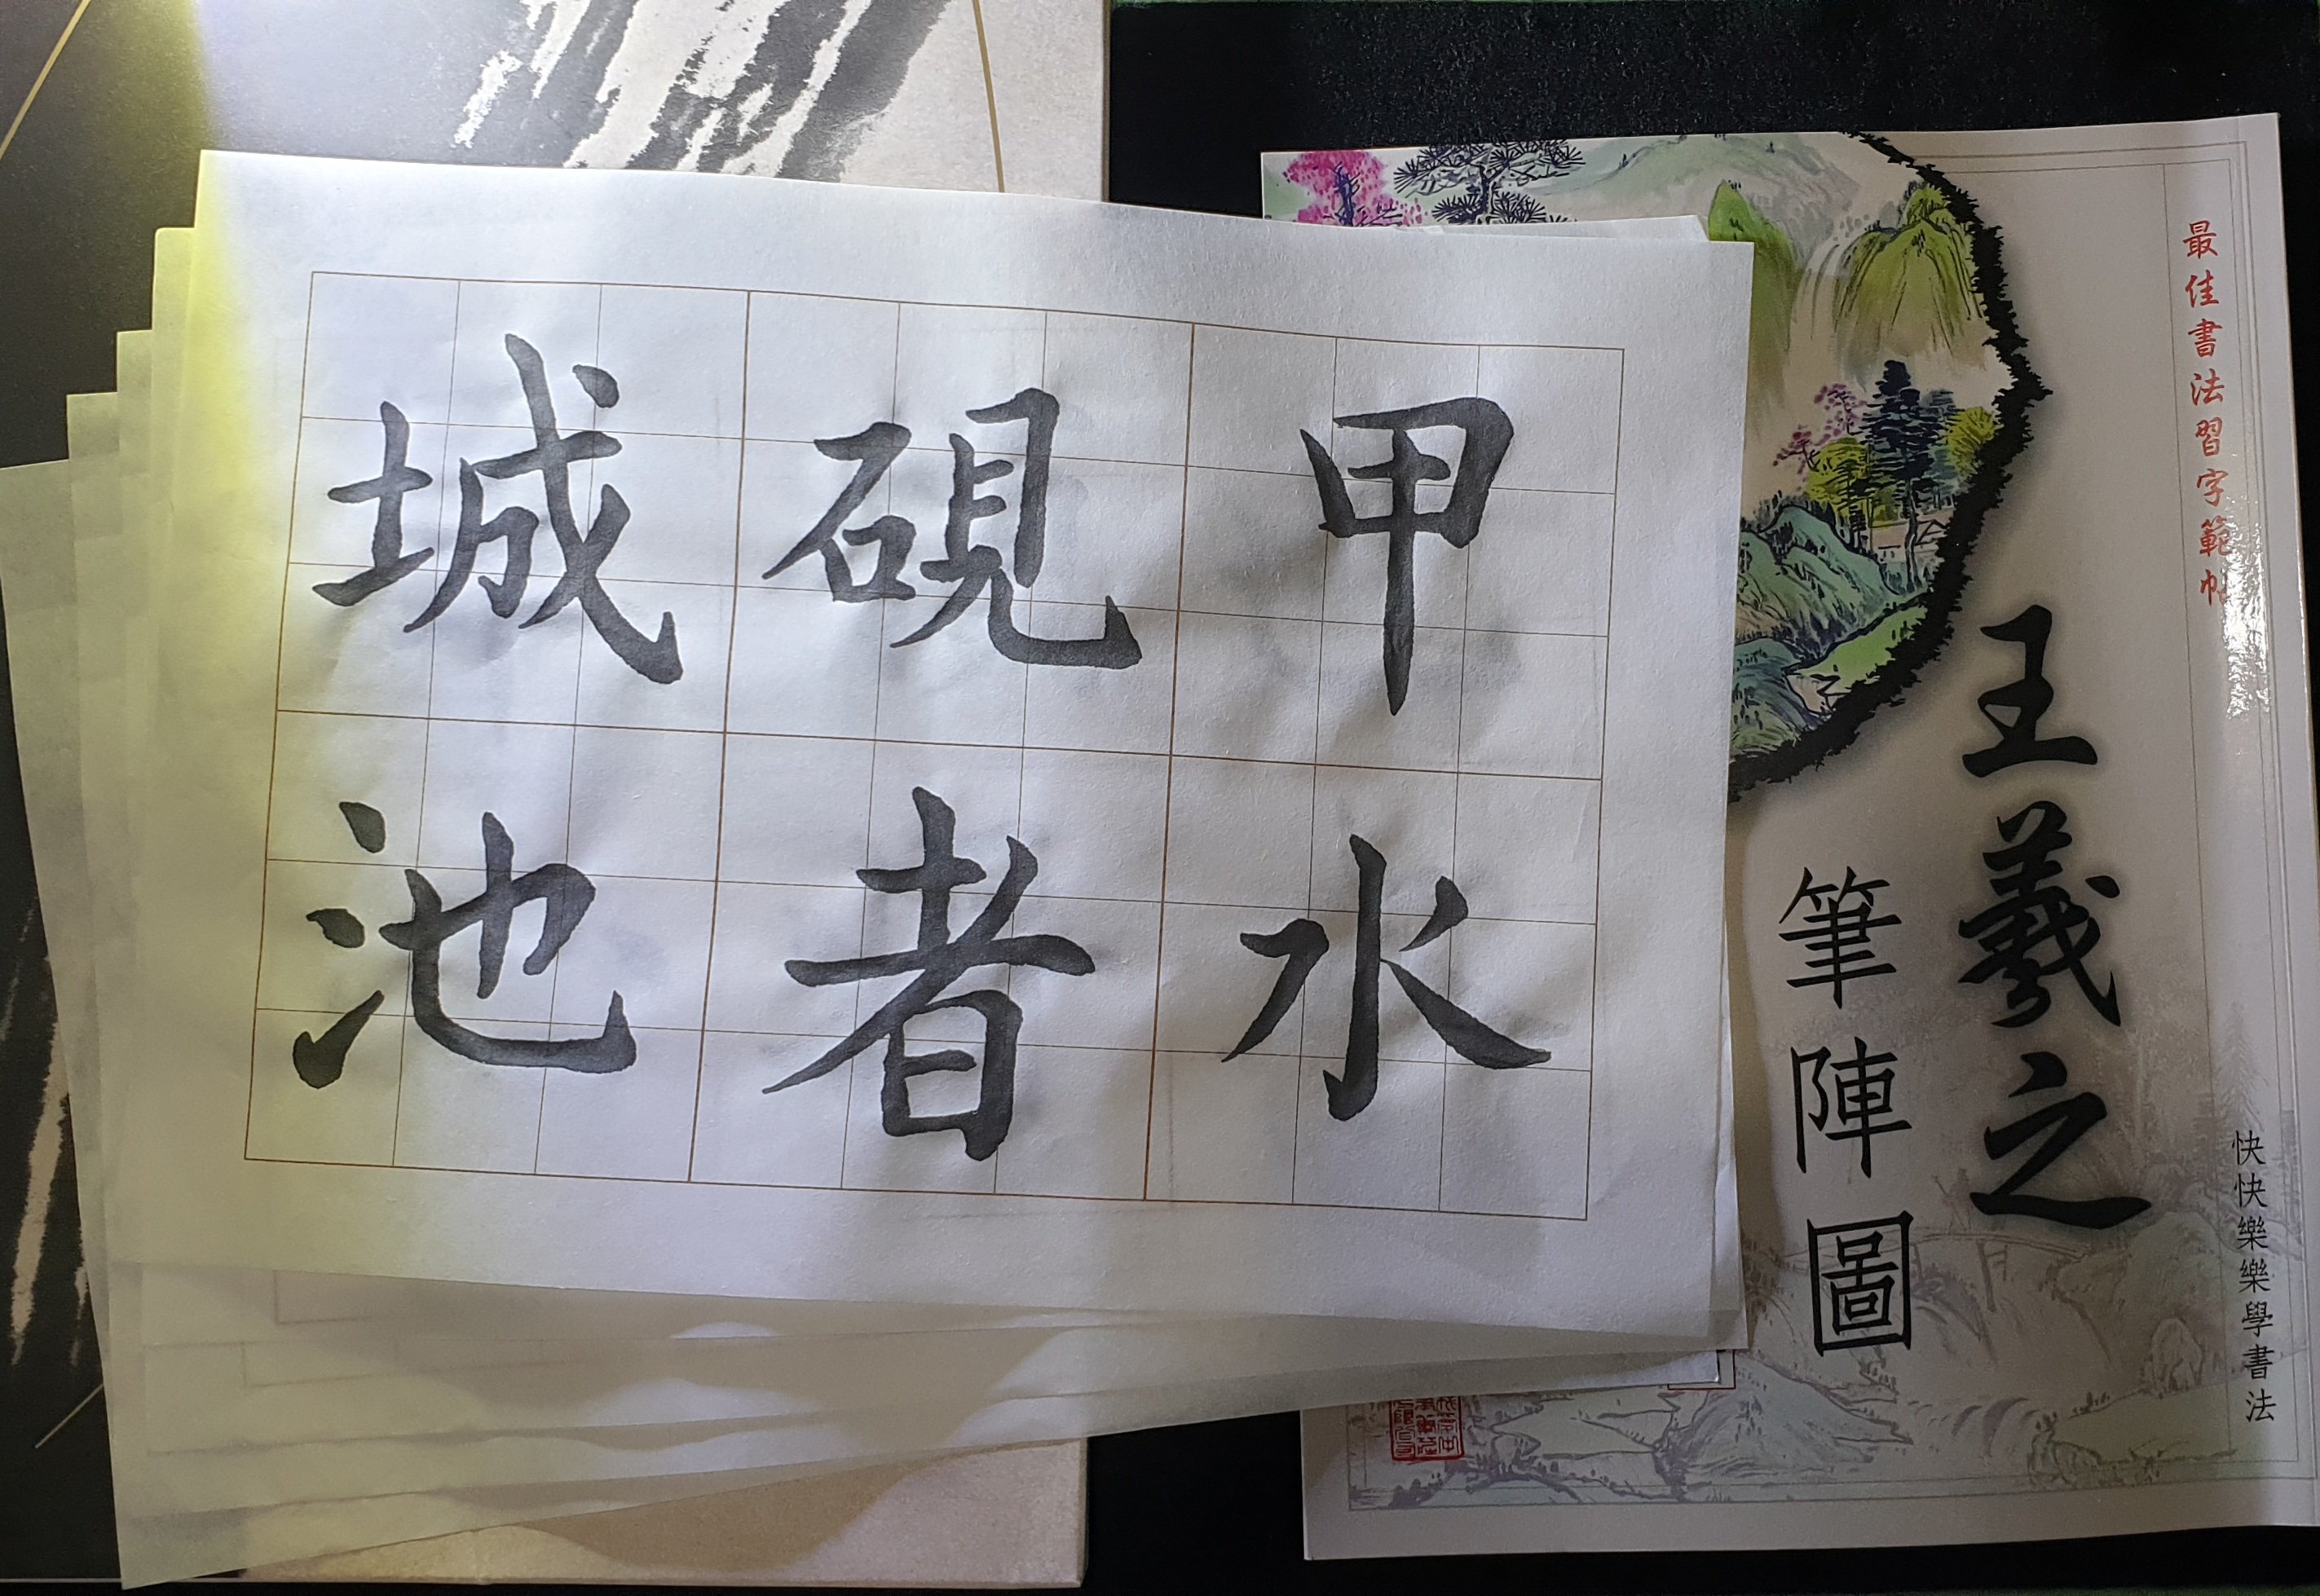 甲水
硯者
城池
最佳書法習字範帖
王羲之
筆陣圖
快快樂樂學書法